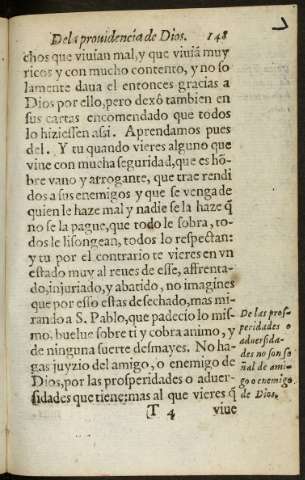 De la prouidencia de Dios. 148
chos que viuian mal, y que viuiã muy
ricos y con mucho contento, y no so
lamente daua el entonces gracias a
Dios por ello, pero dexó tambien en
sus cartas encomendado que todos
lo hiziessen assi. Aprendamos pues
del. Y tu quando vieres alguno que
viue con mucha seguridad, que es hõ-
bre vano y arrogante, que trae rendi
dos a sus enemigos y que se venga de
quien le haze mal y nadie se la haze q̃
no se la pague, que todo le sobra, to-
dos le lisongean, todos lo respectan:
y tu por el contrario te vieres en vn
estado muy al reues de esse, affrenta-
do, injuriado, y abatido, no imagines
que por esso estas desechado, mas mi-
rando a S. Pablo, que padecio lo mis-
mo, buelue sobre ti y cobra animo, y
de ninguna suerte desmayes. No ha-
gas juyzio del amigo, o enemigo de
Dios, por las prosperidades o aduer-
sidades que tiene; mas al que vieres q̃
[T 4 viue
De las pros-
peridades o
aduersida-
des no son se
ñal de ami-
go o enemigo
de Dios.